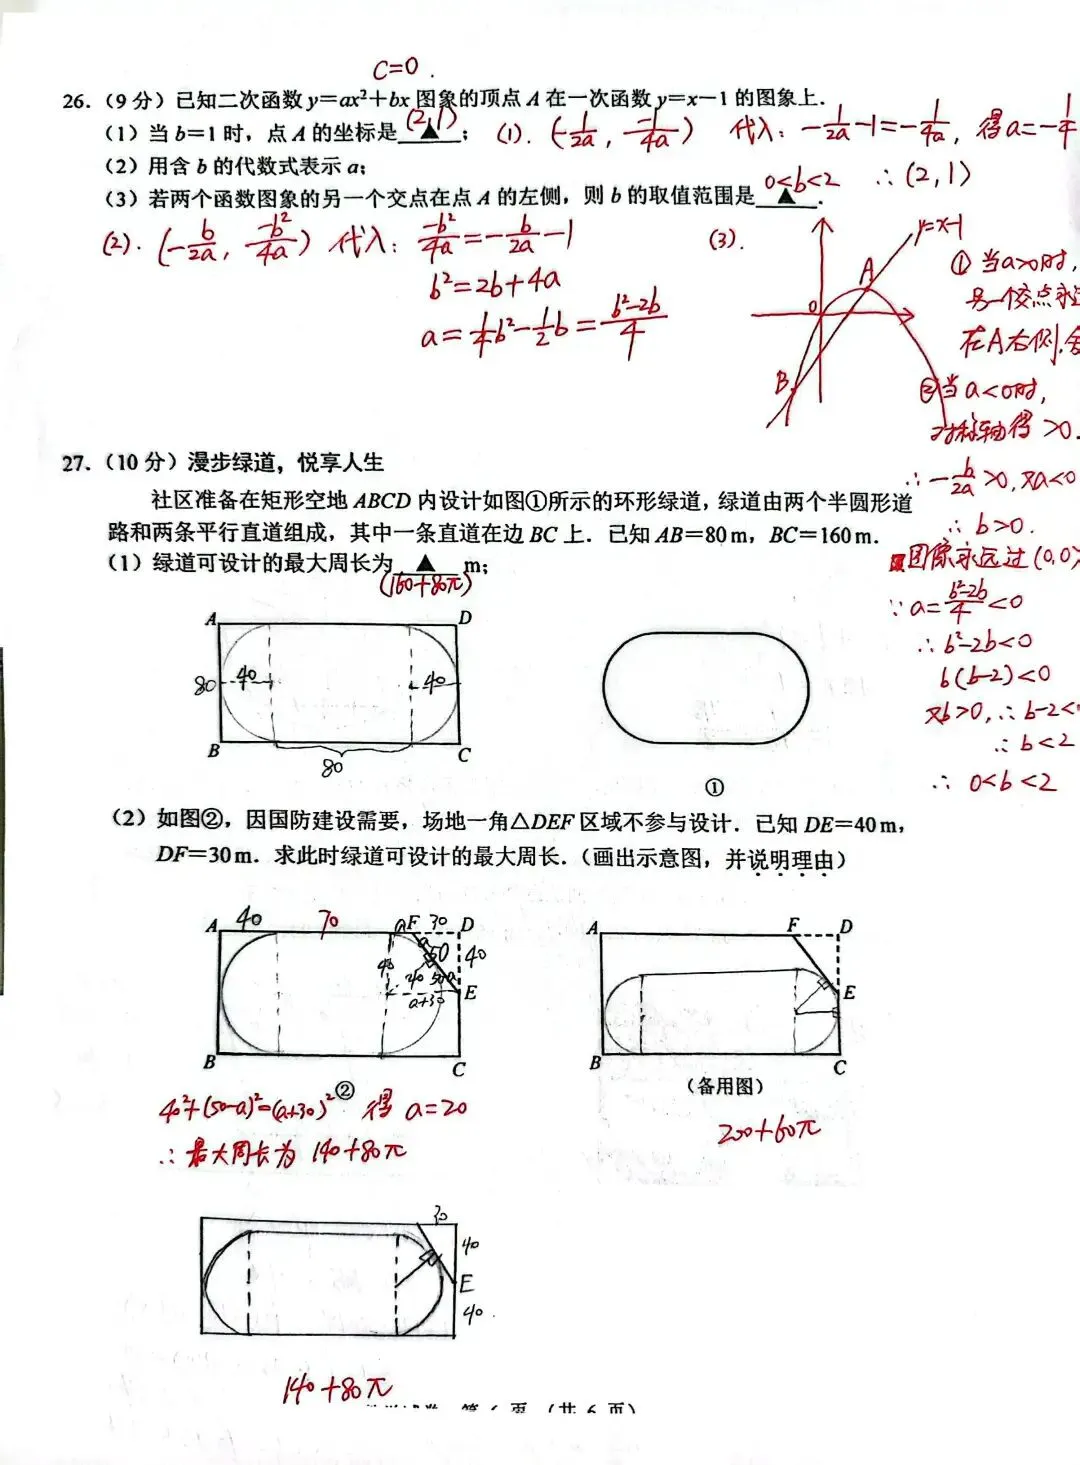 C=0.
26.（9分）已知二次函数 y=ax²+bx 图象的顶点 A 在一次函数 y=x-1 的图象上.
（1）当 b=1 时，点 A 的坐标是 (2,1) ▲；
(1). (-1/2a, -1/4a) 代入：-1/2a-1=-1/4a, 得 a=-1/4
∴(2,1)
（2）用含 b 的代数式表示 a；
（3）若两个函数图象的另一个交点在点 A 的左侧，则 b 的取值范围是 0<b<2 ▲.
(2). (-b/2a, -b²/4a) 代入：-b²/4a=-b/2a-1
b²=2b+4a
a=1/4b²-1/2b=b²-2b/4
(3).
y=x-1
A
O
B
① 当a>0时,
另一个交点永远
在A右侧.舍
②当a<0时,
对称轴得>0.
∴-b/2a>0,又a<0
∴b>0.
图像永远过(0,0)
∵a=b²-2b/4<0
∴b²-2b<0
b(b-2)<0
又b>0,∴b-2<
∴b<2
∴0<b<2
27.（10分）漫步绿道，悦享人生
社区准备在矩形空地 ABCD 内设计如图①所示的环形绿道，绿道由两个半圆形道
路和两条平行直道组成，其中一条直道在边 BC 上．已知 AB=80 m，BC=160 m．
（1）绿道可设计的最大周长为 ▲ m；
(160+80π)
A D
80 40 40
B C
80
①
（2）如图②，因国防建设需要，场地一角△DEF 区域不参与设计．已知 DE=40 m，
DF=30 m．求此时绿道可设计的最大周长．（画出示意图，并说明理由）
A 40 70 a F 30 D
a
50 40
40 40 50-a
a+30 E
B C
②
A F D
E
B C
（备用图）
40²+(50-a)²=(a+30)² 得 a=20
∴最大周长为 140+80π
200+60π
30
40
E
40
140+80π
第 6 页 （共 6 页）